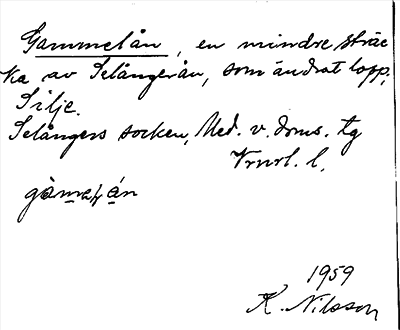 Gammelån, en mindre sträc
ka av Selångerån, som ändrat lopp,
Silje.
Selångers socken, Med. v. doms. tg
Vrnrl. l.
1959
K. Nilsson